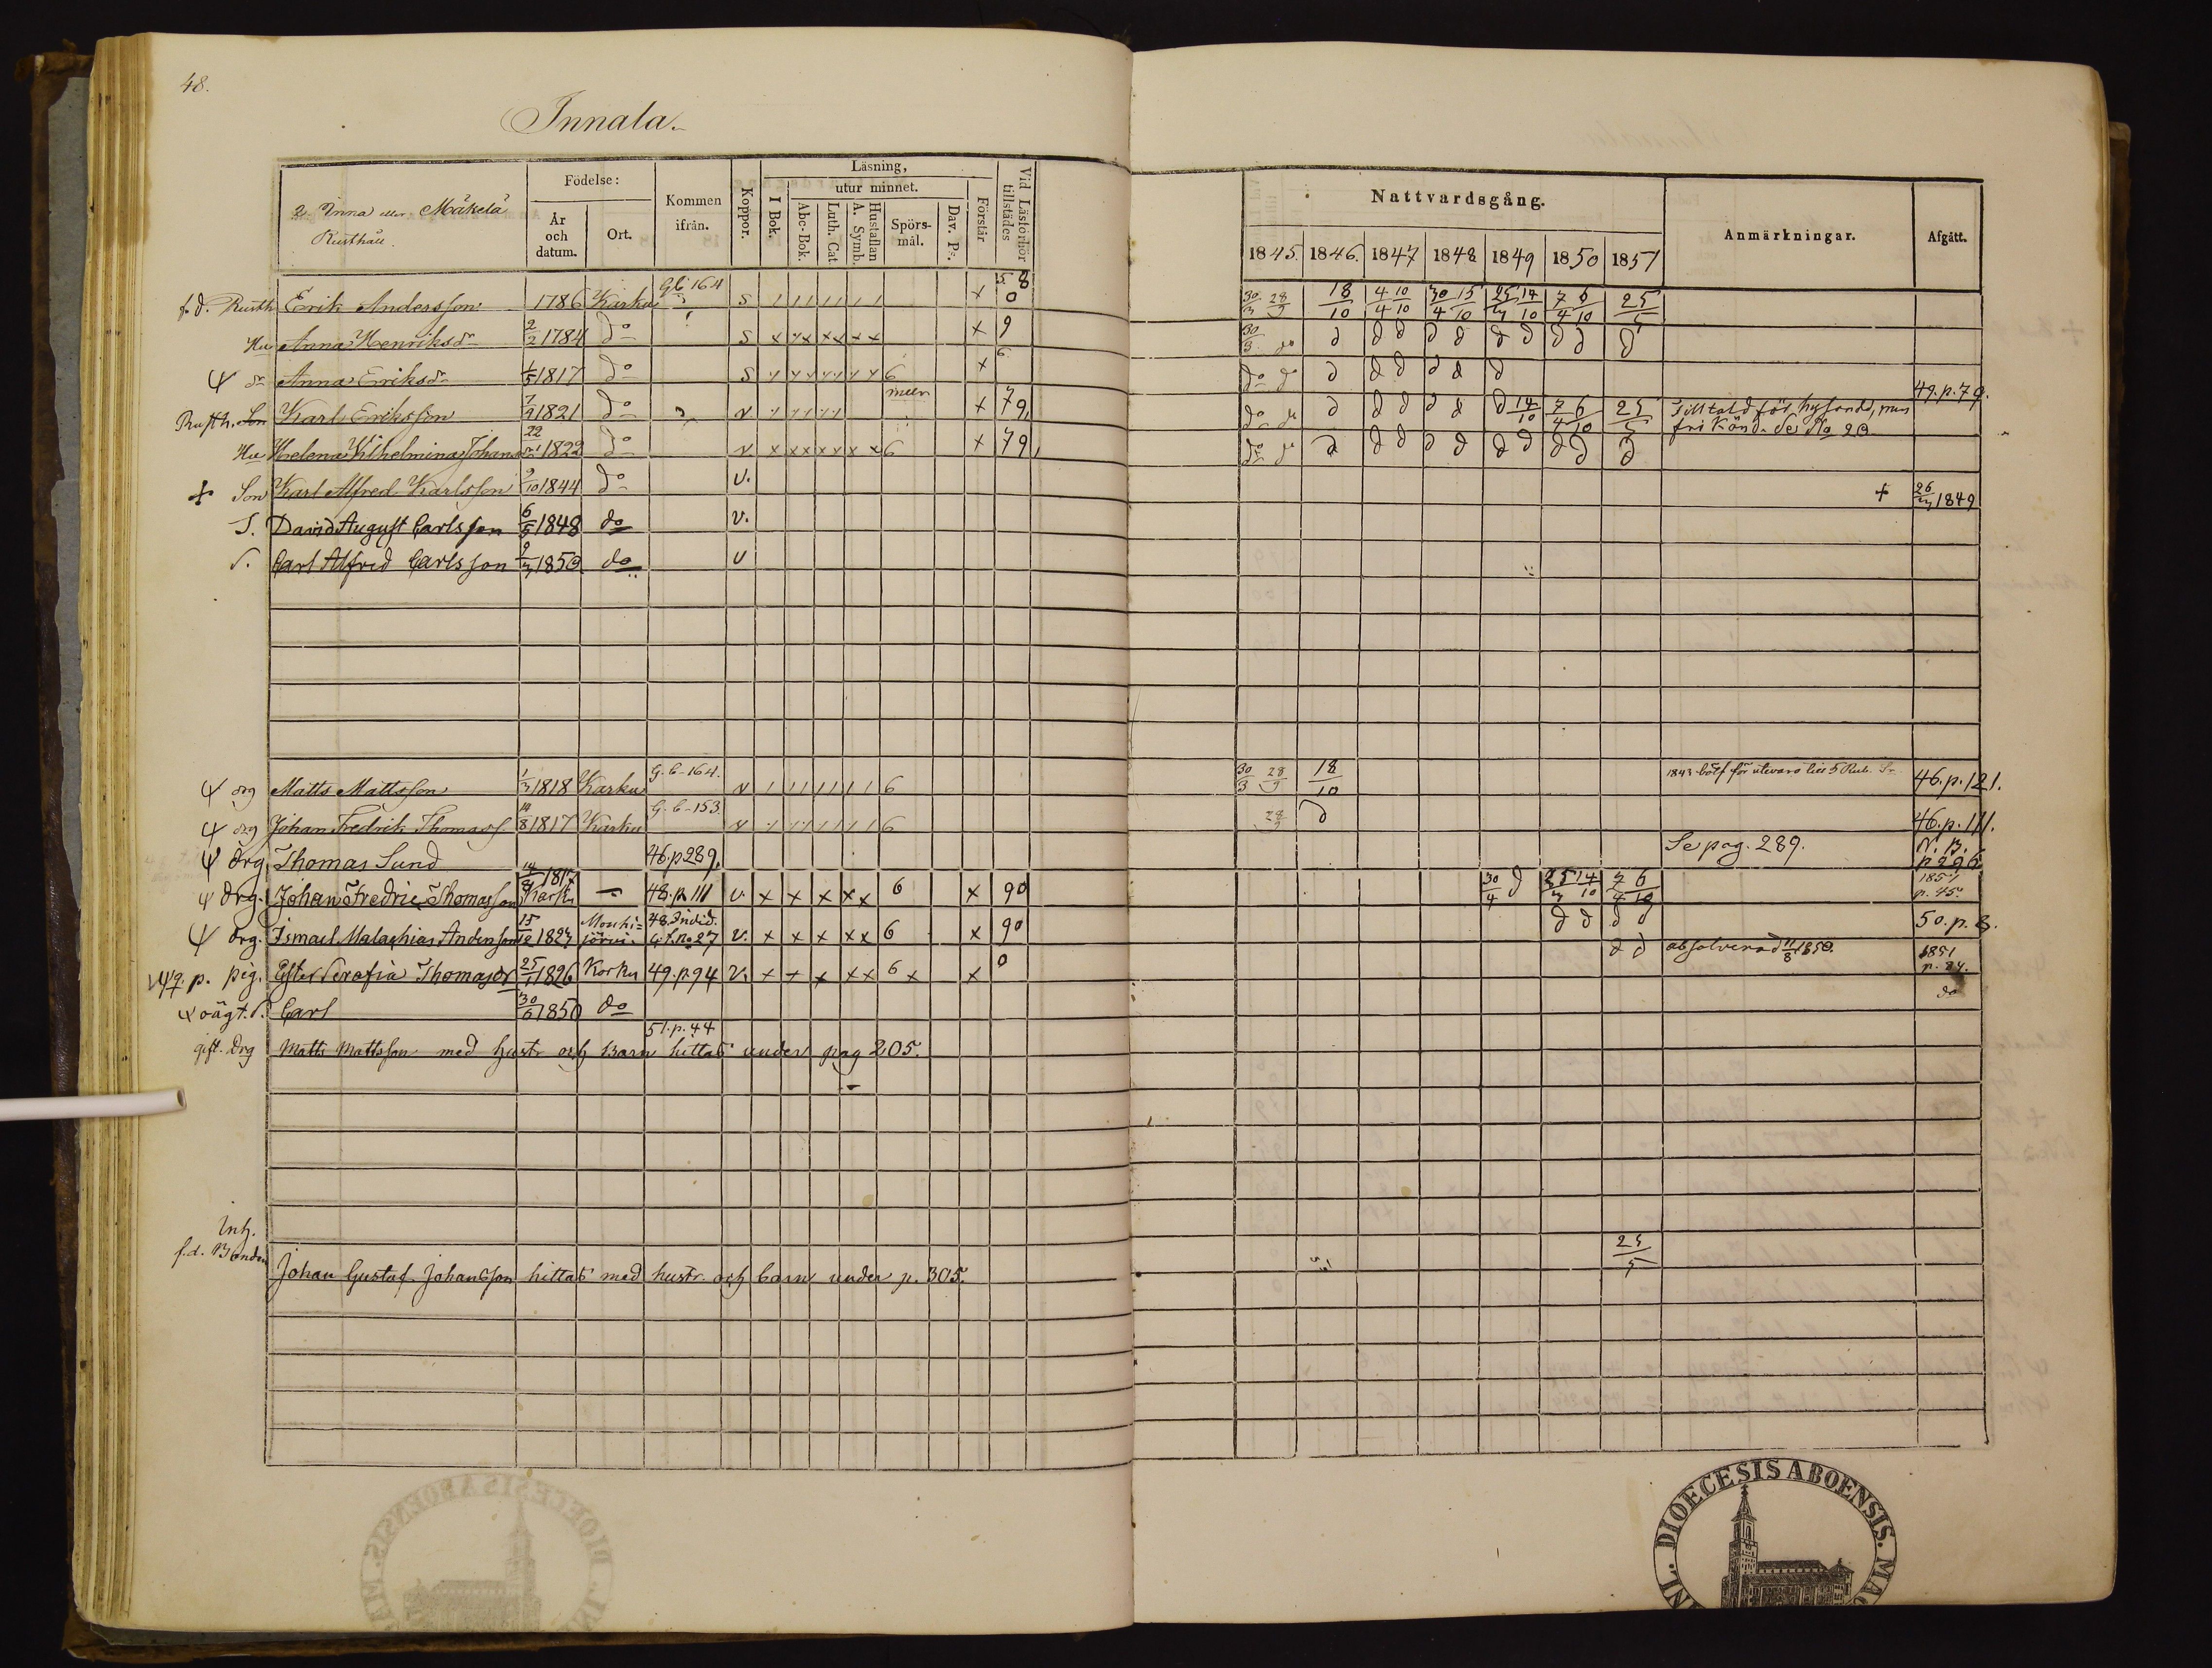 48.
Innala.
2. Inna eller Mäkelä
Rusthåll.
Födelse:
År och datum.
Ort.
Kommen ifrån.
Koppor.
Läsning,
I Bok.
utur minnet.
Abc-Bok.
Luth. Cat
Hustaflan A. Symb.
Spörs-mål.
Dav. Ps.
Förstår
Vid Läsförhör tillstädes
Nattvardsgång.
1845. 1846. 1847 1848 1849 1850 1851
Anmärkningar.
Afgått.
f.d. Rusth Erik Andersson 1786 Karku G.B. 164 S x 58 0 30/3 28/9 18/10 4/4 10/10 30/4 15/10 25/3 14/10 7/4 6/10 25/5
Hu Anna Henriksdr 2/2 1784 do S x x x x x x x x 9 30/3 do d d d d d d d d d d
dr Anna Eriksdr 1817 do S 6 x 6 do d d d d d d d 49. p. 79.
Rusth. Son Karl Eriksson 7/9 1821 do v x 79, do d d d d d d d 14/10 7/4 6/10 25/5 Tilltald för
fri Känd. No 20
Hu Helena Vilhelmina Johansdr 22/ 1822 do v x x x x x x x 6 x 79, do d d d d d d d d d d d
+ Son Karl Alfred Karlsson 9/10 1844 do v. + 26/3 1849
S. David August Carlsson 6/5 1848 do v.
S. Carl Alfred Carlsson 9/3 1850 do v
drg Matts Mattsson 1/3 1818 Karku G.B. 164. v 6 30/3 28/9 18/10 1843 bött för utevaro 5 Rub. Sr 46. p. 121.
drg Johan Fredrik Thomass. 14/8 1817 Karku G.B. 153. v 6 28/9 d 46. p. 111.
Drg Thomas Sund 46. p 289. Se pag. 289. N.B. p 296
Drg. Johan Fredric Thomasson 14/8 1817 Karku 48. p 111 v. x x x x x 6 x 90 30/4 d 25/3 14/10 7/4 6/10 1851 p. 45.
Drg. Ismael Malachias Andersson 15/12 1827 Mouhijärvi 48. No 27 v. x x x x x 6 x 90 d d d d 50. p. 8.
p. pig. Ester Serafia Thomasdr 25/1 1826 Karku 49. p. 94 v. x x x x x 6 x x 0 d d absolverad 11/8 1850. 1851 p. 84.
oägt. S. Carl 30/6 1850 do do
51. p. 44
gift. Drg Matts Mattsson med hustr och Barn hittas under pag 205.
Inh.
f.d. Bonden
Johan Gustaf Johansson hittas med hustr. och barn under p. 305. 25/5
DIOECESIS ABOENSIS.